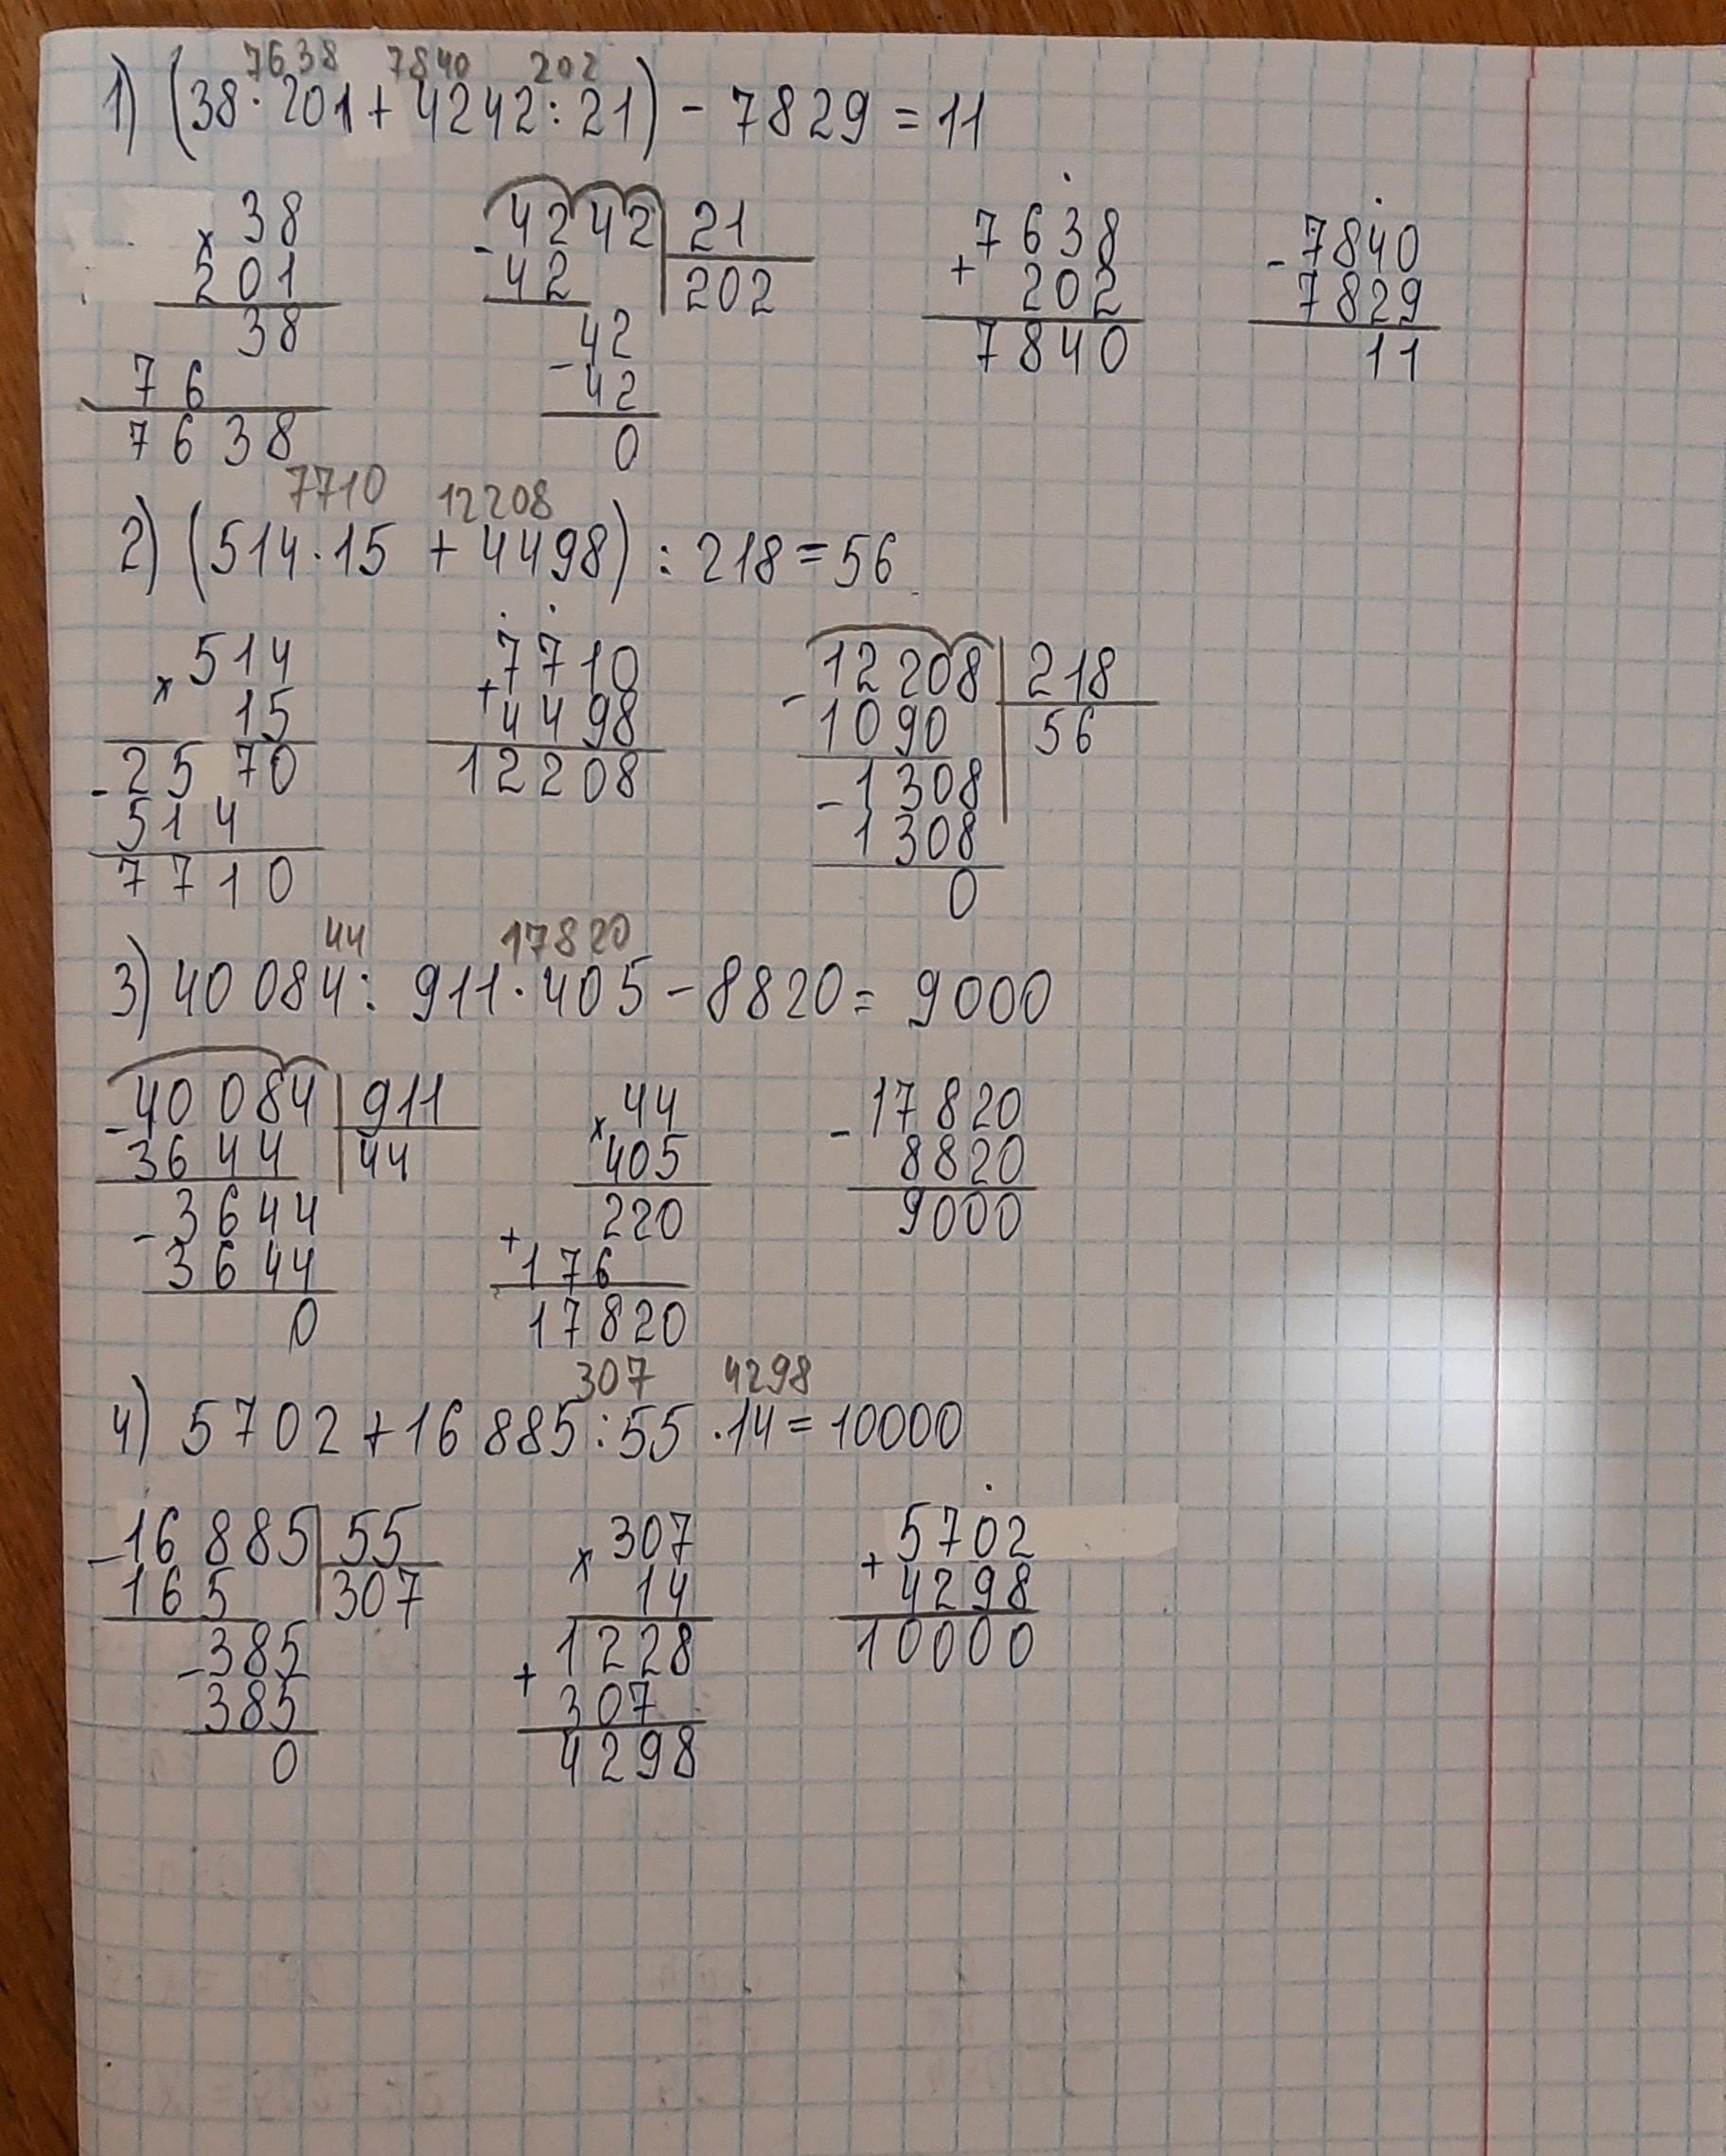 7638 7840 202
1) (38·201+4242:21) - 7829 = 11
38 4242 21 7638 7840
× - + -
201 42 202 202 7829
38 42 7840 11
76 - 42
7638 0
7710 12208
2) (514·15 + 4498) : 218 = 56
514 7710 12208 218
× + -
15 4498 1090 56
- 2570 12208 - 1308
514 1308
7710 0
44 17820
3) 40 084 : 911·405 - 8820 = 9000
- 40 084 911 44 - 17820
×
3644 44 405 8820
- 3644 220 9000
+
3644 176
0 17820
307 4298
4) 5702 + 16 885 : 55 ·14 = 10000
- 16 885 55 307 5702
× +
165 307 14 4298
- 385 1228 10000
+
385 307
0 4298